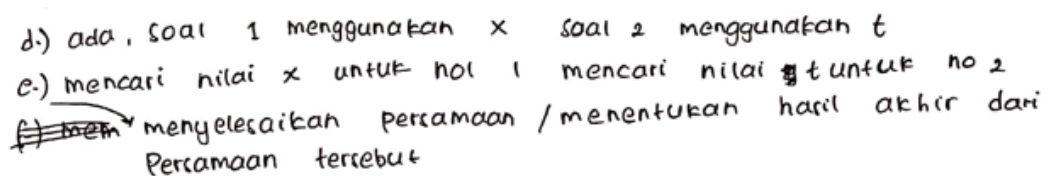 d.) ada, soal 1 menggunakan x soal 2 menggunakan t
e.) mencari nilai x untuk no 1 mencari nilai t untuk no 2
f.) mem menyelesaikan persamaan / menentukan hasil akhir dari
Persamaan tersebut